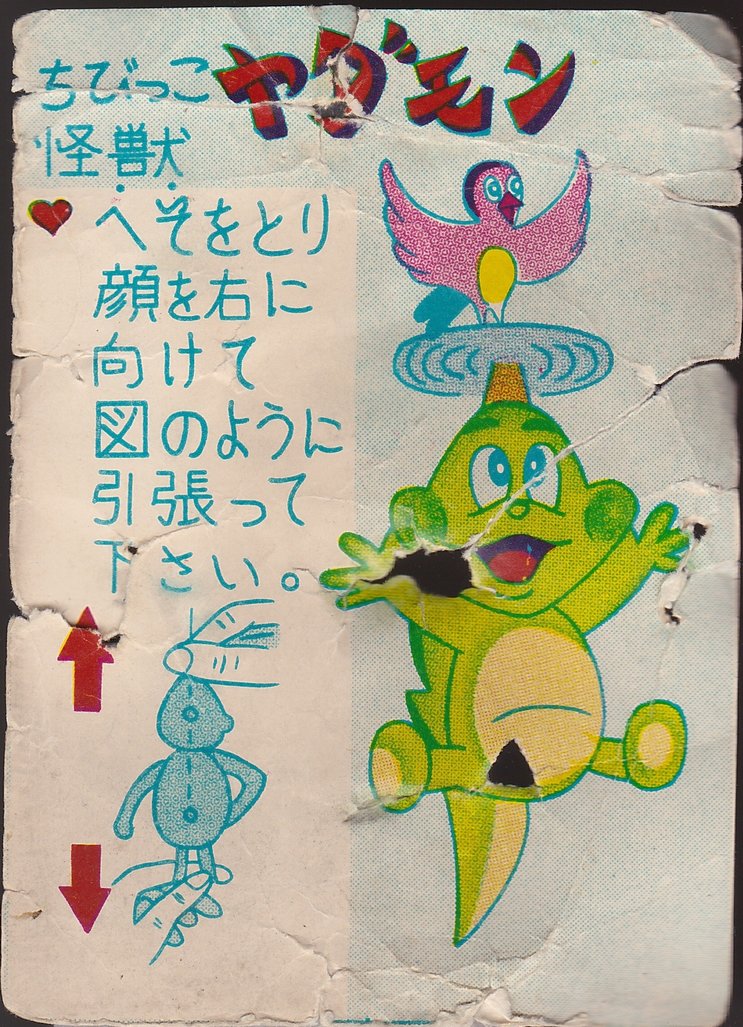 ちびっこ
怪獣
ヤダモン
へそをとり
顔を右に
向けて
図のように
引張って
下さい。